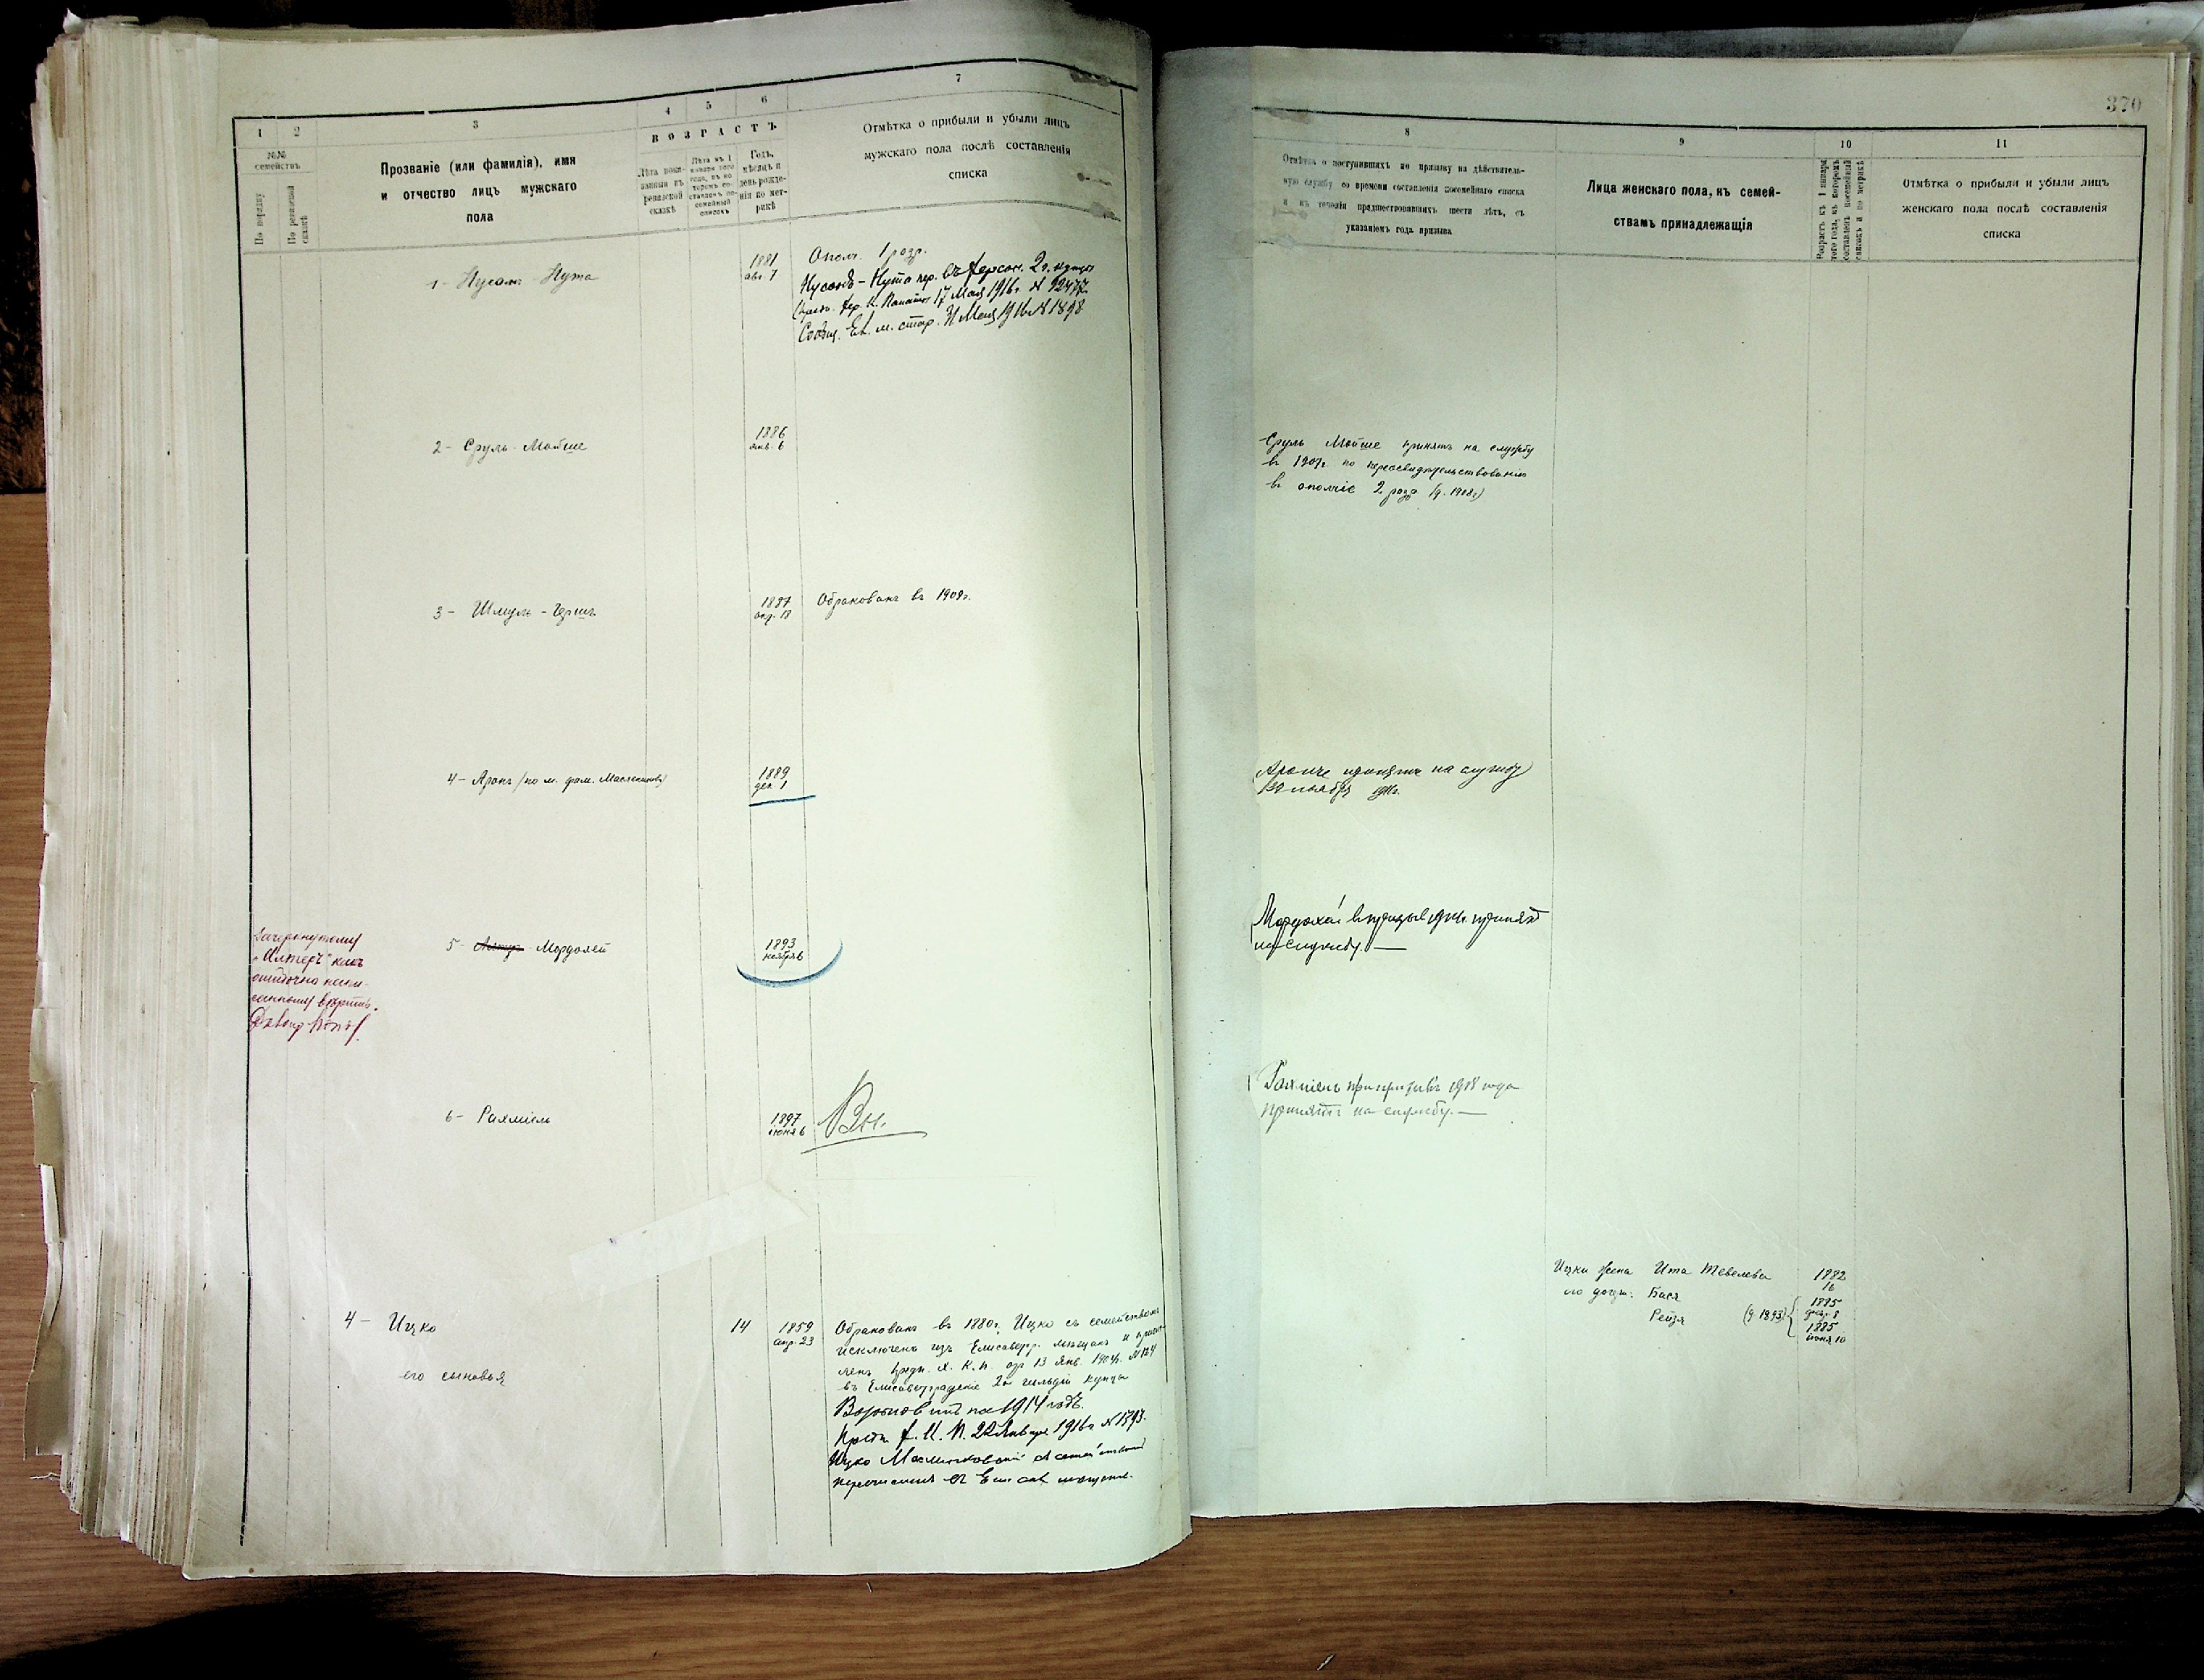 370
1
2
3
4
5
6
7
№№
семействъ
По порядку
По ревизской сказкѣ
Прозваніе (или фамилія), имя
и отчество лицъ мужскаго
пола
ВОЗРАСТЪ
Лѣта пока-
занныя въ
ревизской
сказкѣ
Лѣта къ 1
января того
года, въ ко-
торомъ со-
ставленъ по-
семейный
списокъ
Годъ,
мѣсяцъ и
день рожде-
нія по мет-
рикѣ
Отмѣтка о прибыли и убыли лицъ
мужскаго пола послѣ составленія
списка
1 - Нусонъ - Нута
1881
авг. 7
Ополч. 1 разр.
Нусонъ - Нута пер. въ Херсон. 2 г. купцы
17 Мая 1916 г. № 12477
Сообщ. Ел. м. стар. 31 Мая 1916 № 1898
2 - Сруль - Мойше
1886
янв. 6
3 - Шмуль - Герш
1887
апр. 18
Обракованъ въ 1909 г.
4 - Аронъ (по м. фам.
1889
дек 1
Зачеркнутому
"Алтеръ" какъ
ошибочно напи-
санному вѣрить.
5 - Мордохей
1893
ноября 6
6 - Рахміель
1897
іюня 6
4 - Ицко
его сыновья
14
1859
апр. 23
Обракованъ въ 1880 г. Ицко съ семействомъ
исключенъ изъ Елисаветгр. мѣщанъ и
13 янв. 1904 г. № 124
въ Елисаветградскіе 2й гильдіи купцы
на 1914 годъ.
22 Января 1916 г. № 1393.
Ицко
8
9
10
11
Отмѣтка о поступившихъ по призыву на дѣйствитель-
ную службу со времени составленія посемейнаго списка
и въ теченіи предшествовавшихъ шести лѣтъ, съ
указаніемъ года призыва
Лица женскаго пола, къ семей-
ствамъ принадлежащія
Возрастъ къ 1 января
того года, въ которомъ
составленъ посемейный
списокъ и по метрикѣ
Отмѣтка о прибыли и убыли лицъ
женскаго пола послѣ составленія
списка
Сруль Мойше принятъ на службу
въ 1907 г. по переосвидѣтельствованію
въ ополчіе 2 разр (д. 1908 г)
принятъ на службу
ноября 1911 г.
Мордохай въ призывѣ 1914 г. принятъ
на службу. —
Рахміель при призывѣ 1918 года
принятъ на службу. —
Ицки жена Ита Тевелева
1882
16
его дочери: Бася
Рейзя
(д 1893)
1885
1885
іюня 10